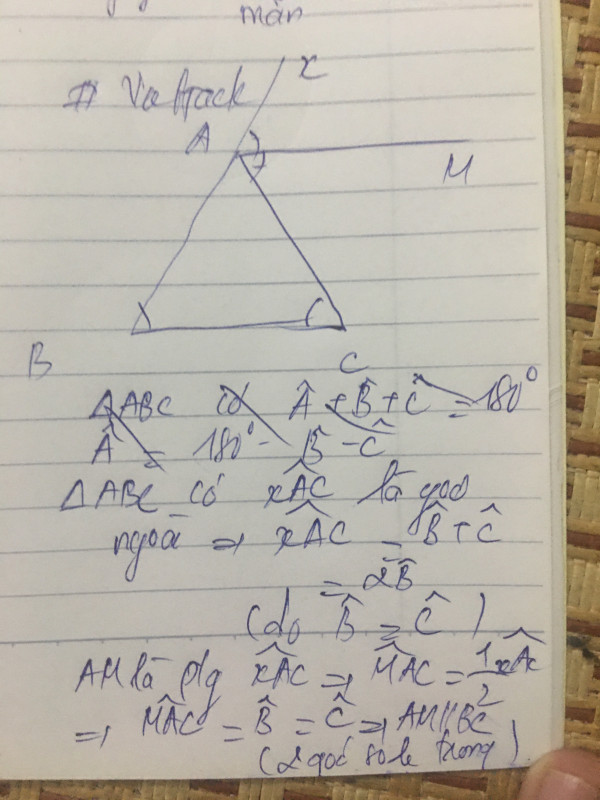 mãn
x
A
M
B
C
ΔABC có Â + B̂ + Ĉ = 180°
Â = 180° - B̂ - Ĉ
ΔABC có xÂC là góc
ngoài => xÂC = B̂ + Ĉ
= 2B̂
(do B̂ = Ĉ)
AM là p/g xÂC => MÂC = 1/2 xÂC
=> MÂC = B̂ = Ĉ => AM // BC
(2 góc so le trong)